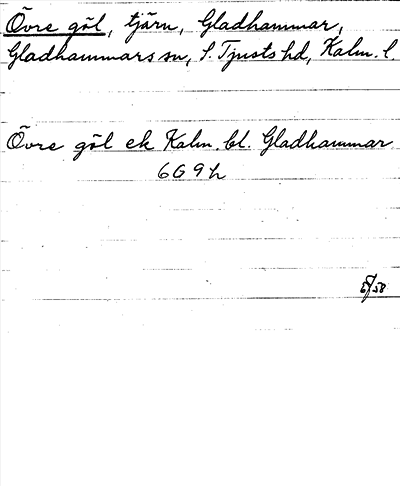 Övre göl, tjärn, Gladhammar,
Gladhammars sn, S. Tjusts hd, Kalm. l.
Övre göl ek Kalm. bl. Gladhammar
6G9h